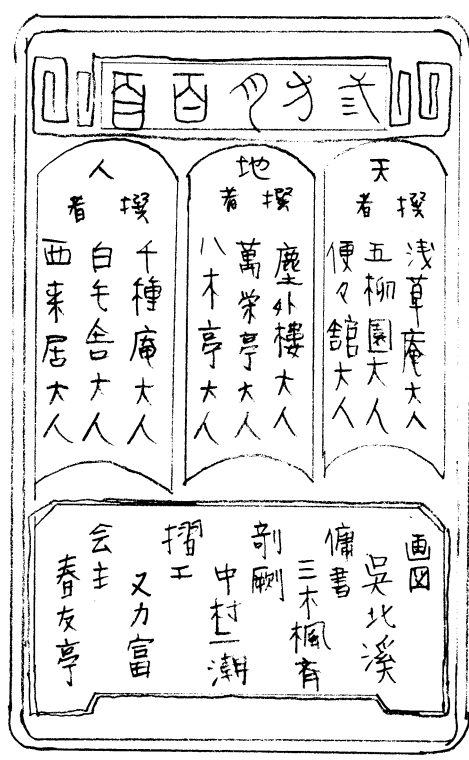 天
撰者
浅草庵大人
五柳園大人
便々館大人
地
撰者
塵外樓大人
萬栄亭大人
八木亭大人
人
撰者
千種庵大人
白毛舎大人
西来居大人
画図
呉北溪
傭書
三木楓斉
剞劂
中村二潮
摺工
又力富
会主
春友亭